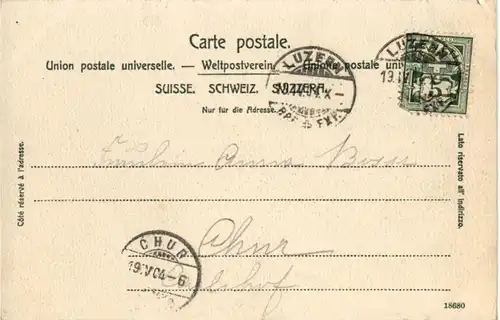 Carte postale.
Union postale universelle. — Weltpostverein. — Unione postale universale.
SUISSE. SCHWEIZ. SVIZZERA.
Nur für die Adresse.
LUZERN
BRF. EXP.
LUZERN
19.IV
5
Côté réservé à l'adresse.
Lato riservato all' indirizzo.
Fräulein Anna Bossi
Chur
CHUR
19.V.04.-6
18680